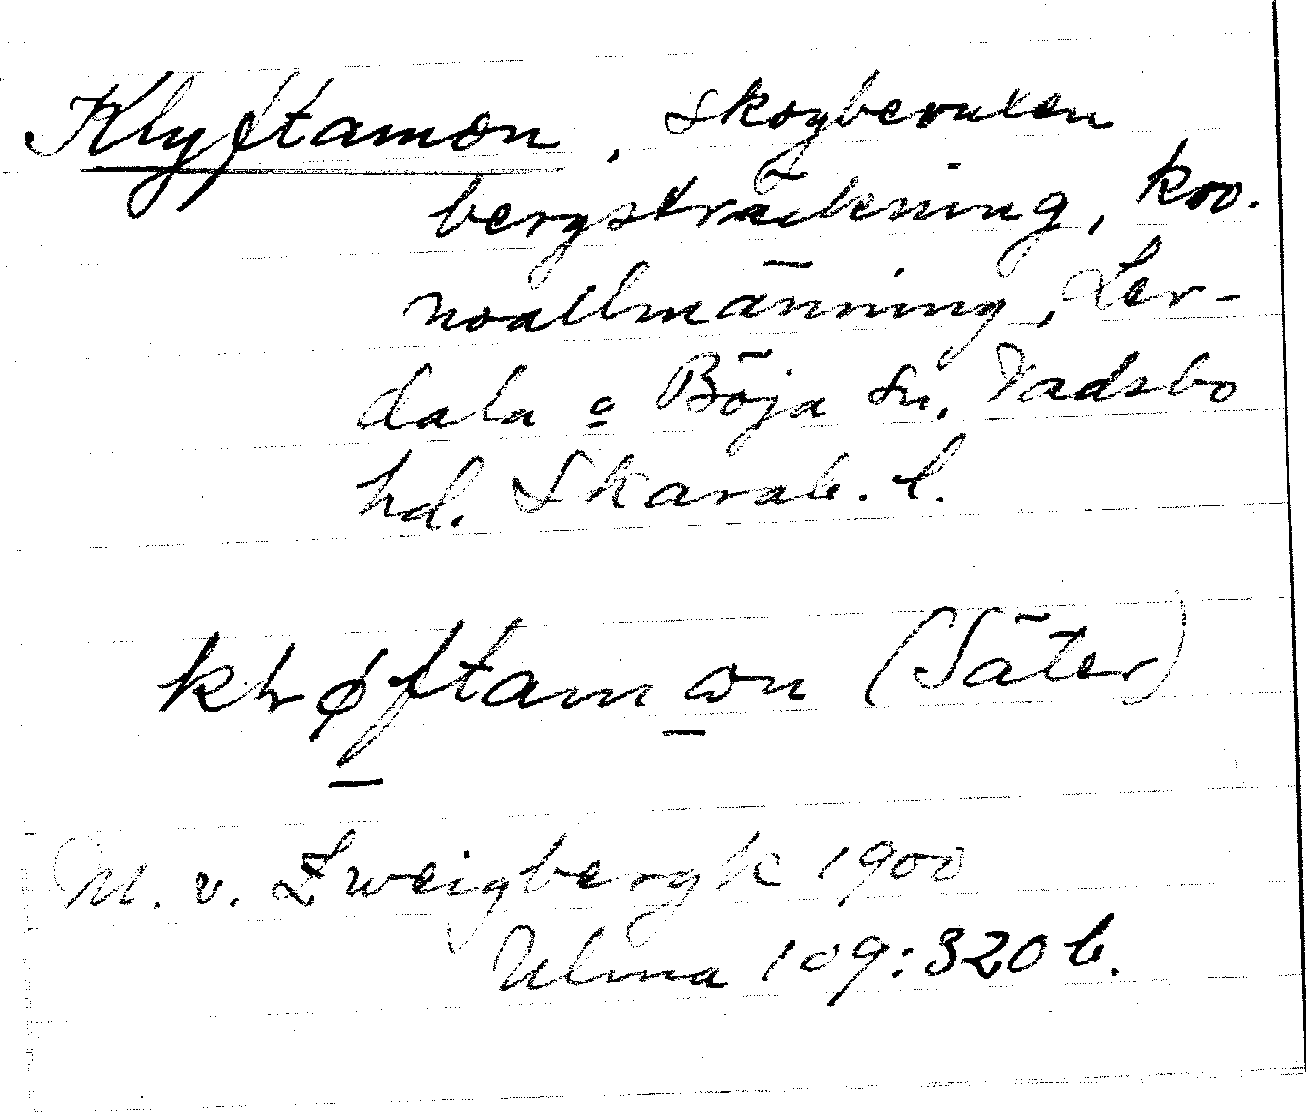 Klyftamon, skogbevuxen
bergsträckning, kro-
noallmänning, Ler-
dala o Böja sn, Vadsbo
hd. Skarab. l.
(Säter)
M. v. Zweigbergk 1900
Ulma 109:320 b.